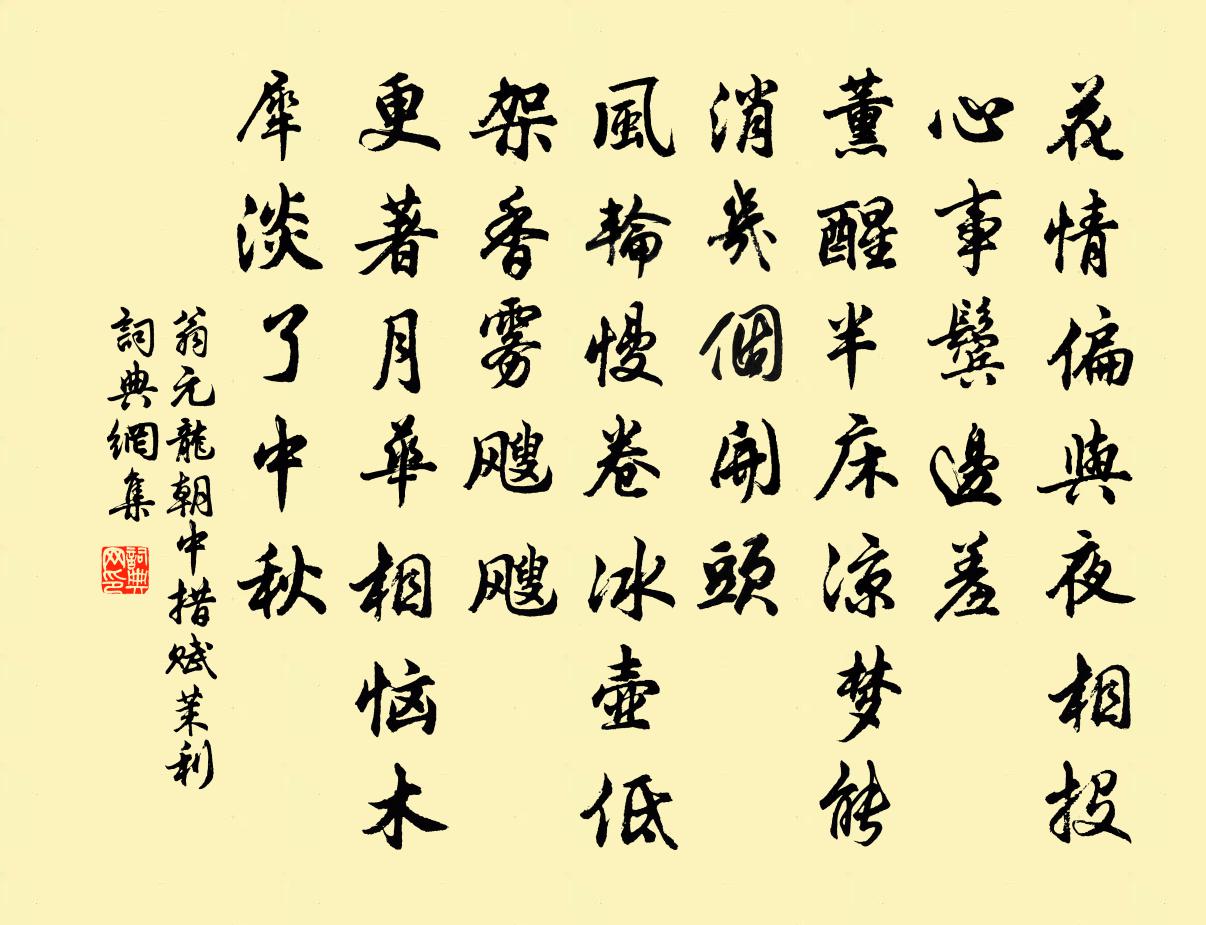 花情偏與夜相投
心事鬓邊羞
薰醒半床涼梦能
消幾個開頭
風輪慢卷冰壺低
架香雾飕飕
更著月華相恼木
犀淡了中秋
翁元龍朝中措賦茉利
詞典網集
詞典网印